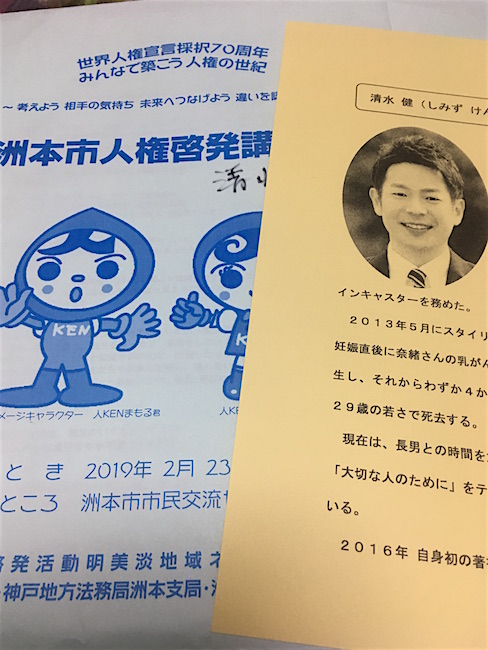 世界人権宣言採択70周年
みんなで築こう 人権の世紀
～ 考えよう 相手の気持ち 未来へつなげよう 違いを
洲本市人権啓発講
清水
KEN
KEN
メージキャラクター 人KENまもる君
人KE
とき 2019年 2月 23
ところ 洲本市市民交流
啓発活動明美淡地域ネ
・神戸地方法務局洲本支局・
清水 健（しみず けん
インキャスターを務めた。
２０１３年５月にスタイリ
妊娠直後に奈緒さんの乳がん
生し、それからわずか４か
２９歳の若さで死去する。
現在は、長男との時間を
「大切な人のために」をテ
いる。
２０１６年 自身初の著